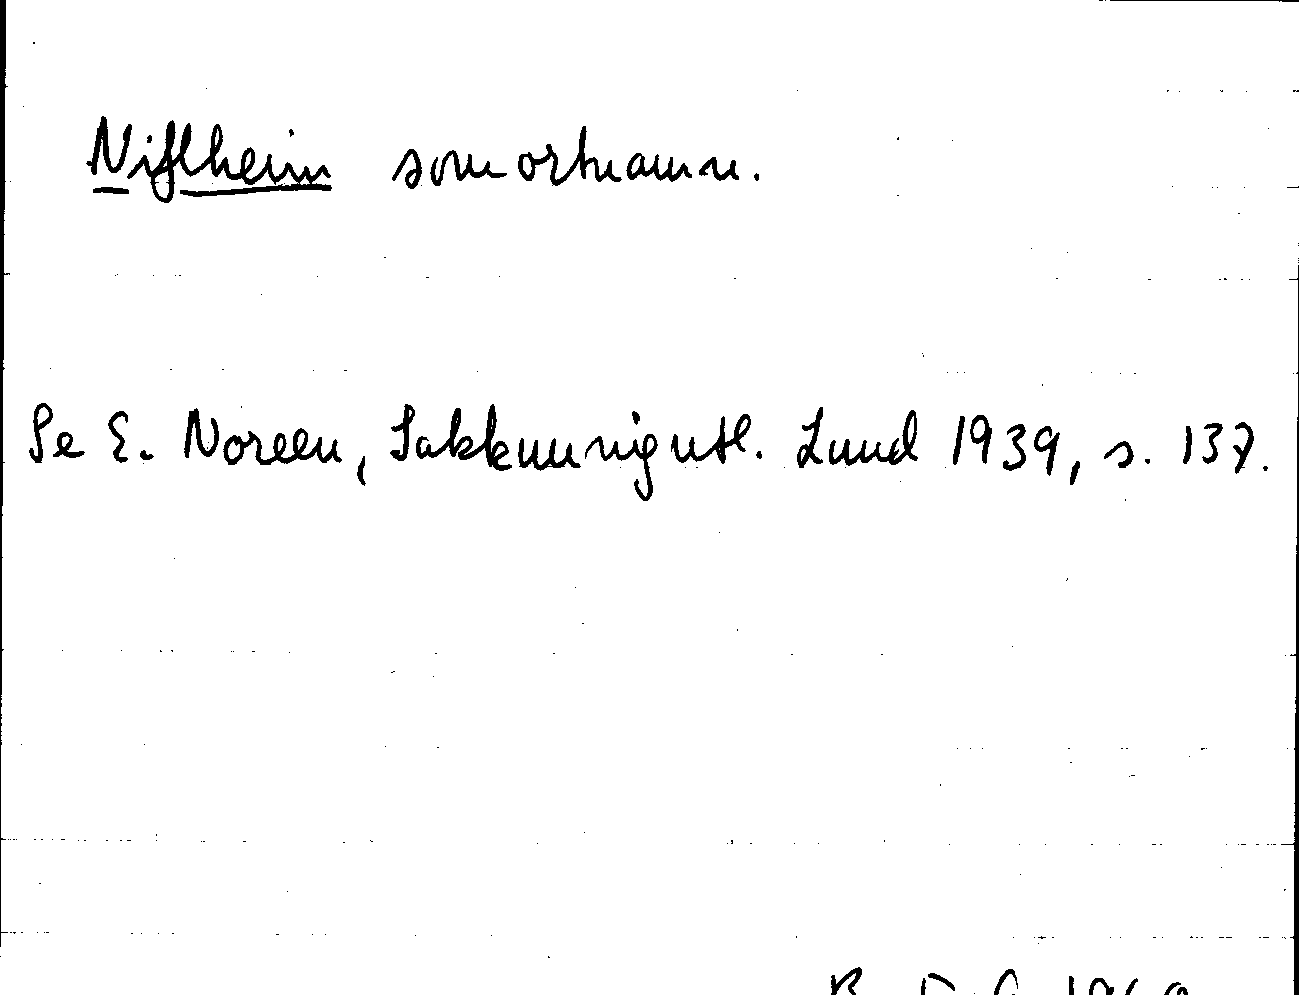 Niflheim som ortnamn.
Se E. Noreen, Sakkunnigutl. Lund 1939, s. 137.